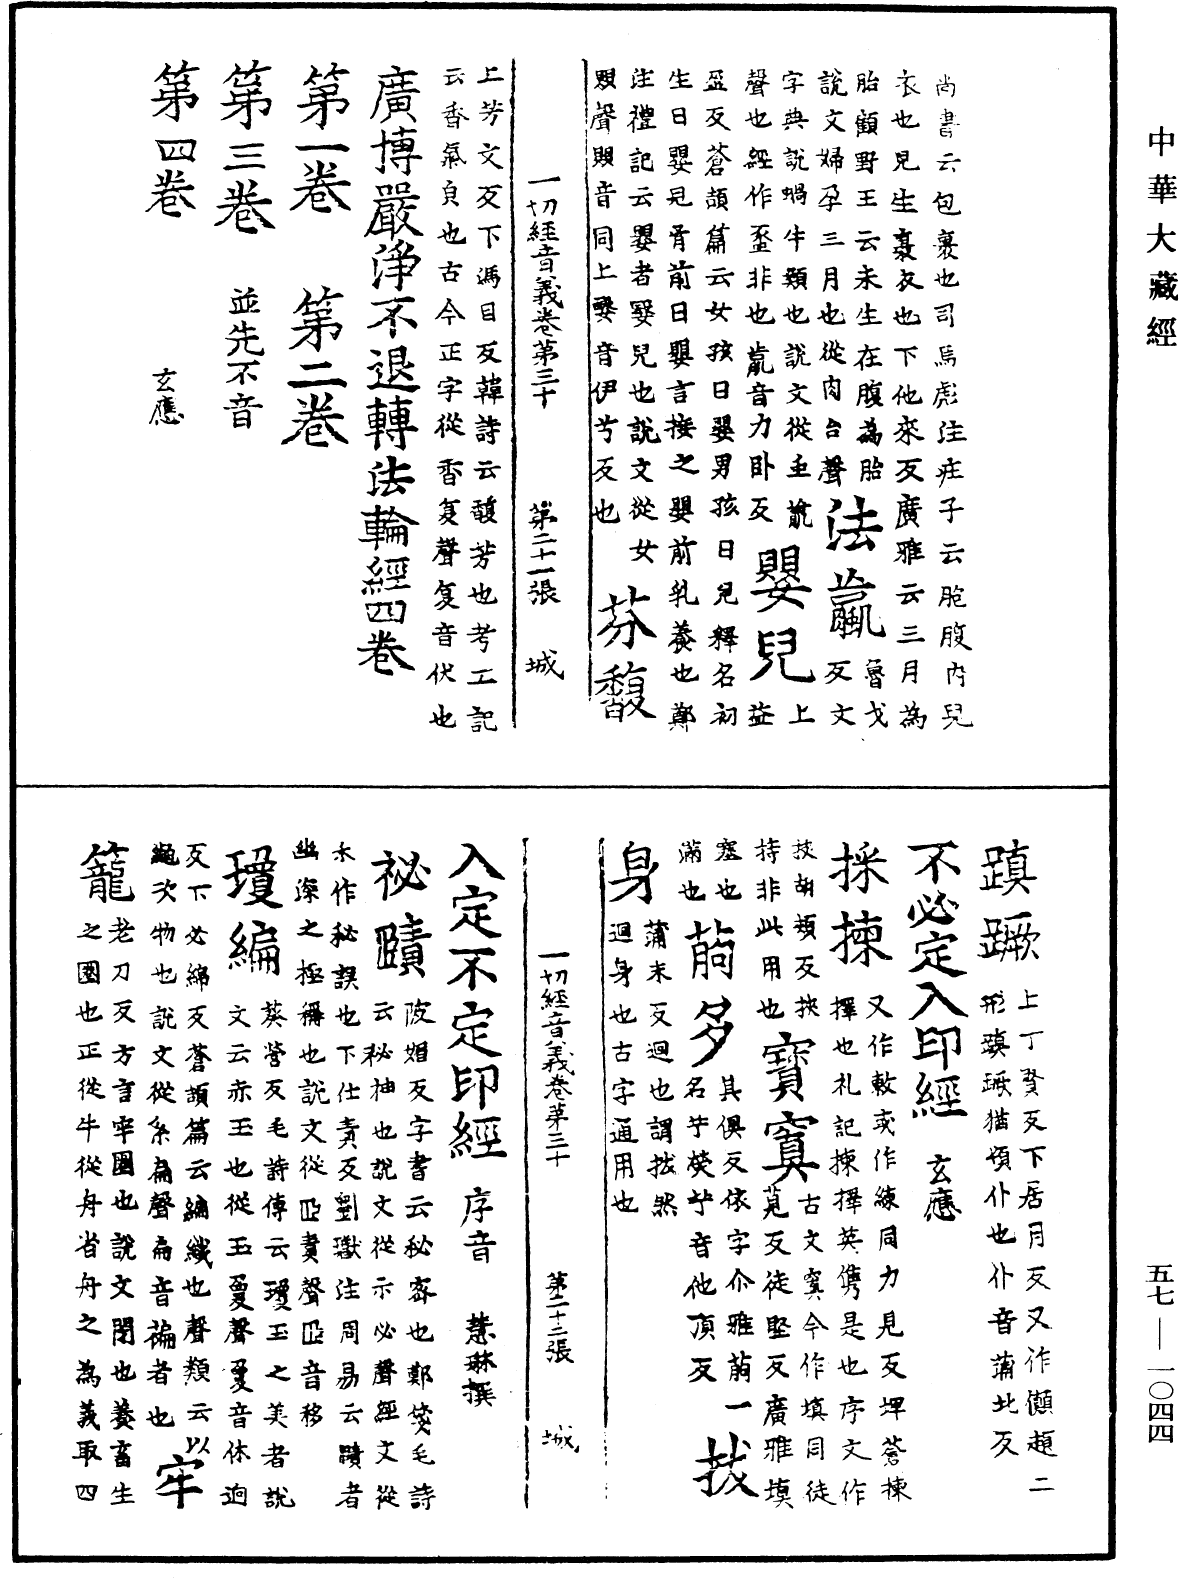 中華大藏經
尚書云包裹也司馬彪注莊子云胞腹內兒
衣也兒生裹衣也下他來反廣雅云三月為
胎顧野王云未生在腹為胎
說文婦孕三月也從肉台聲
法蠃
魯戈反文
字典說蝸牛類也說文從虫𣎆
聲也經作蠃非也𣎆音力臥反
嬰兒
益盈反蒼頡篇云女孩曰嬰男孩曰兒釋名初
生曰嬰兒胷前曰嬰言接之嬰前乳養也鄭
注禮記云嬰者嫛兒也說文從女
賏聲賏音同上嫛音伊兮反也
芬馥
一切經音義卷第三十
第二十一張
城
上芳文反下馮目反韓詩云馥芳也考工記
云香氣皃也古今正字從香复聲复音伏也
廣博嚴淨不退轉法輪經四卷
第一卷
第二卷
第三卷
並先不音
第四卷
玄應
蹎蹶
上丁賢反下居月反又作傎趚二
形蹎蹶猶頓仆也仆音蒲北反
不必定入印經
玄應
採揀
又作敕或作練同力見反埤蒼揀
擇也礼記揀擇英儁是也序文作
挾胡頰反挾
持非此用也
寶窴
古文窴今作填同徒
見反徒堅反廣雅填
塞也
滿也
䓟多
其俱反依字尒雅䓟一
名芐熒芐音他頂反
拔身
蒲末反迴也謂拔然
迴身也古字通用也
一切經音義卷第三十
第二十二張
城
入定不定印經
序音
慧琳撰
祕賾
陂媚反字書云秘密也鄭箋毛詩
云祕神也說文從示必聲經文從
禾作秘誤也下仕責反劉瓛注周易云賾者
幽深之極稱也說文從𦣞責聲𦣞音移
瓊編
葵營反毛詩傳云瓊玉之美者說
文云赤玉也從玉敻聲敻音休迥
反下必綿反蒼頡篇云編織也聲類云以
繩次物也說文從糸扁聲扁音褊者也
牢籠
老刀反方言牢圈也說文閉也養畜生
之圈也正從牛從舟省舟之為義取四
五七—一〇四四